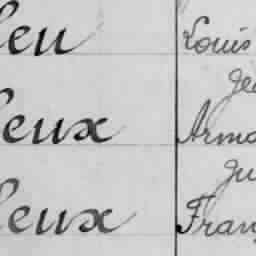 leu Louis
Ge
leux Arma
Ju
leux Franç